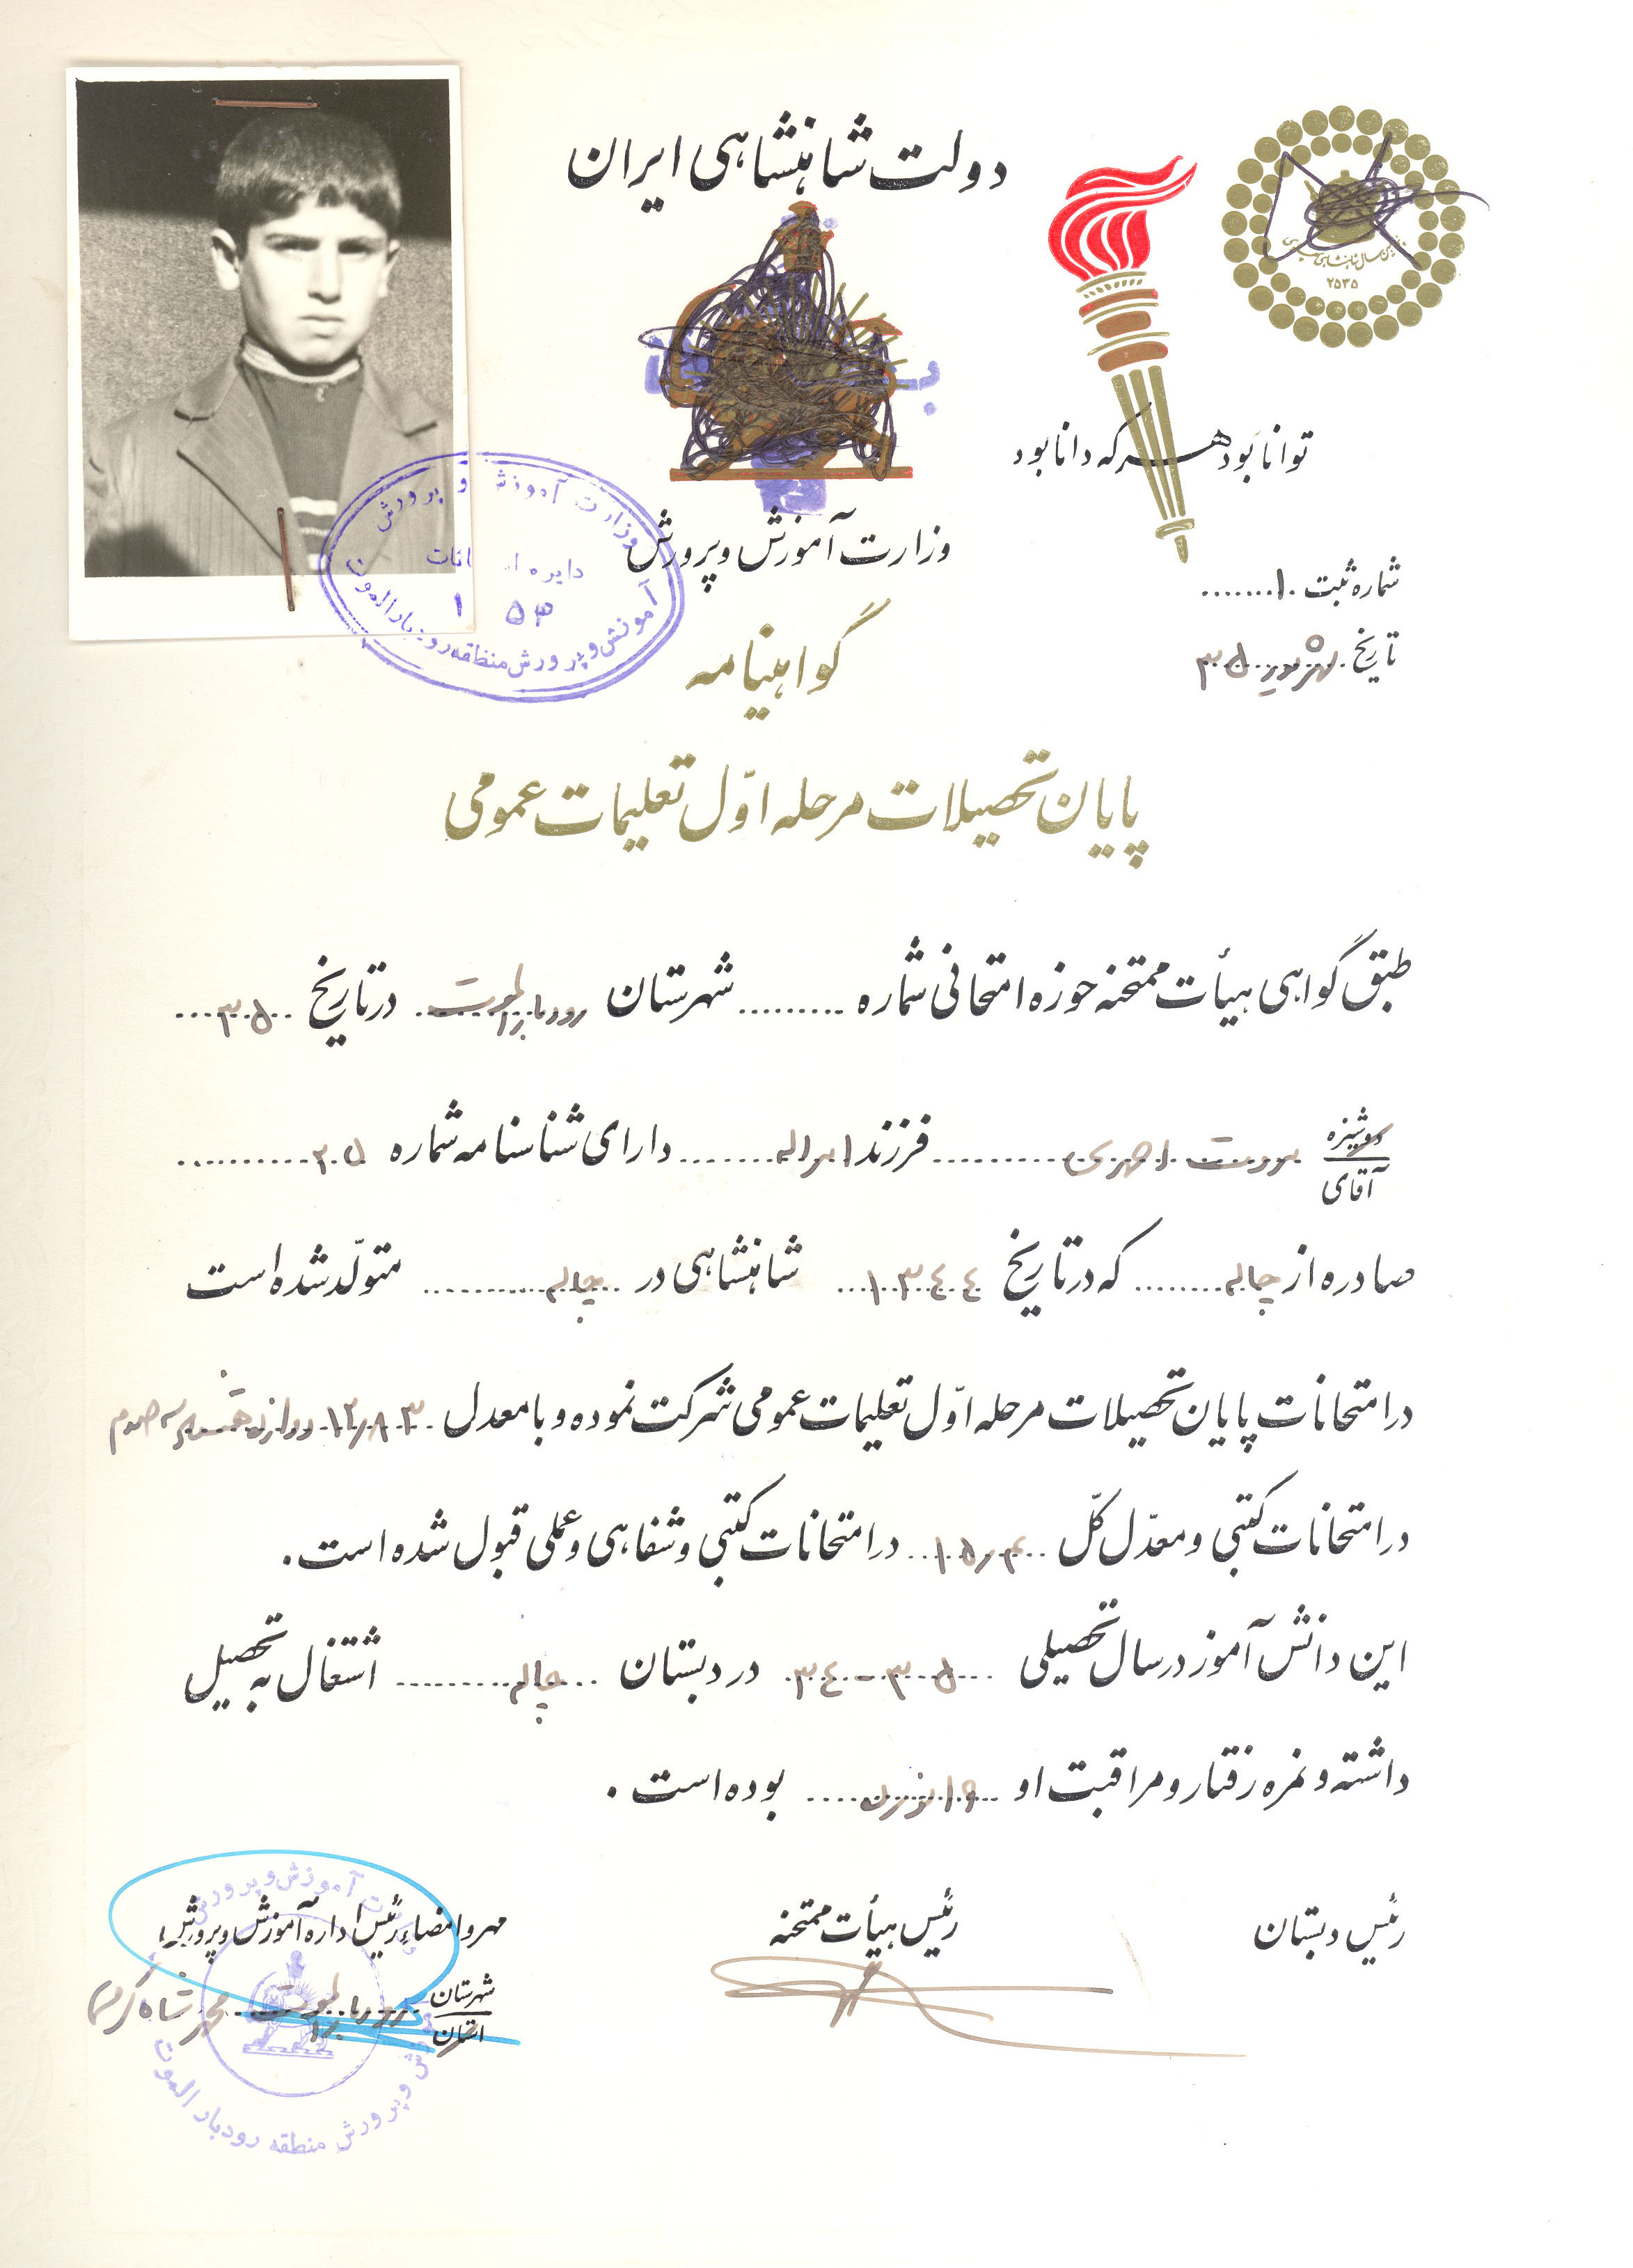 دولت شاهنشاهی ایران
۲۵۳۵
توانا بود هر که دانا بود
وزارت آموزش و پرورش
شماره ثبت ۱
تاریخ شهریور ۳۵
وزارت آموزش و پرورش
دایره
آموزش و پرورش منطقه رودبار الموت
گواهینامه
پایان تحصیلات مرحله اوّل تعلیمات عمومی
طبق گواهی هیأت ممتحنه حوزه امتحانی شماره ......... شهرستان رودبار الموت در تاریخ ۳۵
دوشیزه
آقای احمدی فرزند دارای شناسنامه شماره ۲۰۵
صادره از که در تاریخ ۱۳۴۴ شاهنشاهی در متولّد شده است
در امتحانات پایان تحصیلات مرحله اوّل تعلیمات عمومی شرکت نموده و با معدل ۱۲/۸۳ دوازده
در امتحانات کتبی و معدّل کلّ در امتحانات کتبی و شفاهی و عملی قبول شده است.
این دانش آموز در سال تحصیلی ۳۵-۳۴ در دبستان اشتغال به تحصیل
داشته و نمره رفتار و مراقبت او ۱۹ بوده است.
رئیس دبستان
رئیس هیأت ممتحنه
مهر و امضاء رئیس اداره آموزش و پرورش
شهرستان
استان رودبار الموت
آموزش و پرورش
و پرورش منطقه رودبار الموت